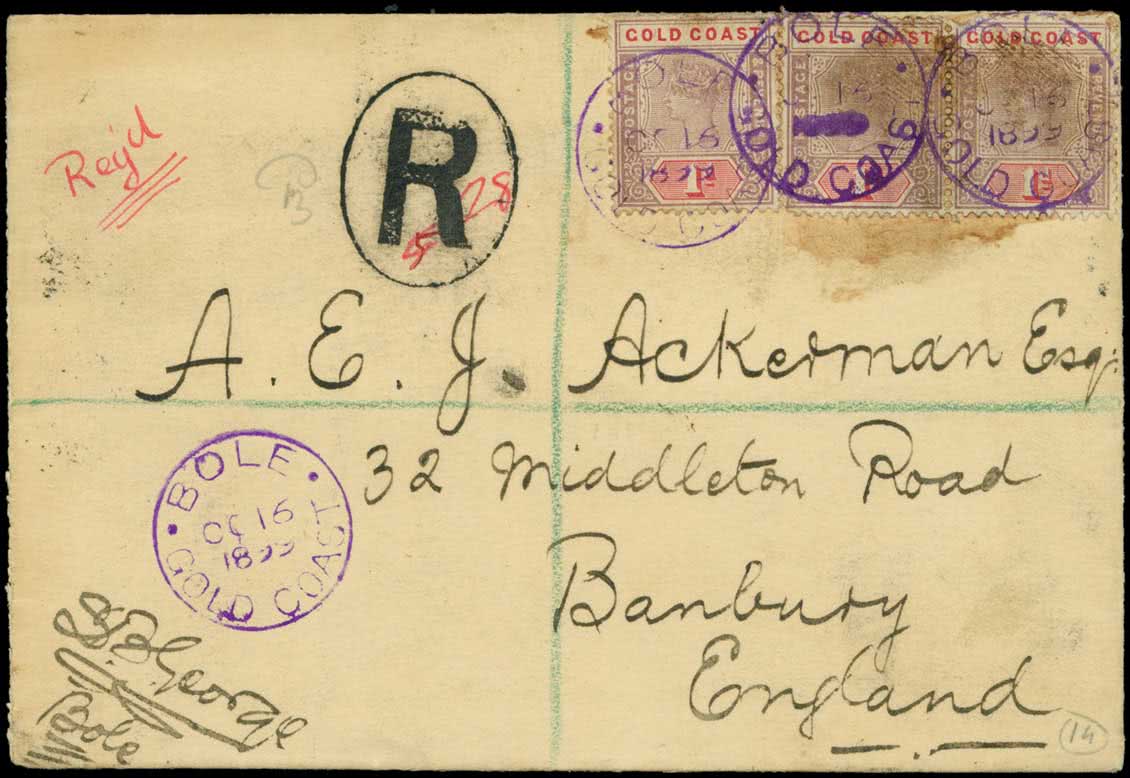 GOLD COAST GOLD COAST GOLD COAST
POSTAGE POSTAGE POSTAGE
BOLE OC 16 1899 GOLD COAST
1D
Reg'd
R
28
A. E. J. Ackerman Esq.
32 Middleton Road
Banbury
England
BOLE
OC 16
1899
GOLD COAST
George
Bole
14